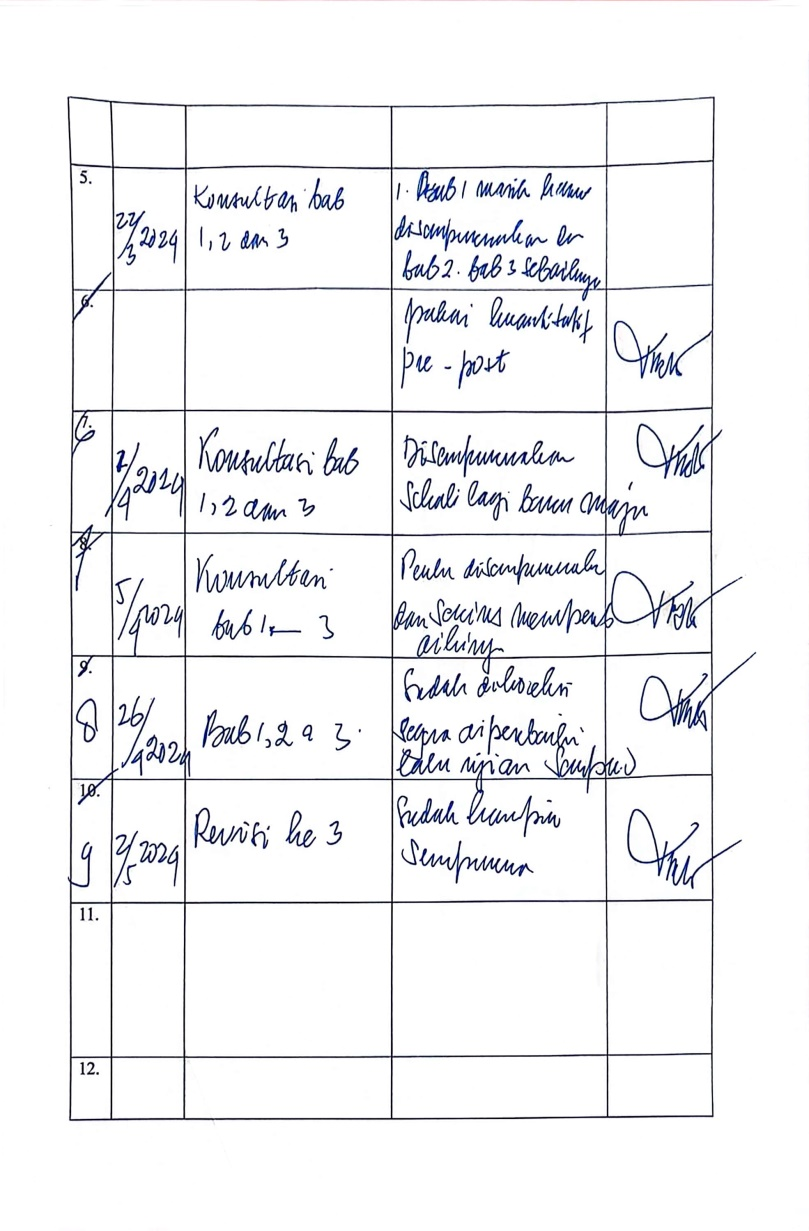 5.
22/3 2024
Konsultasi bab
1, 2 dan 3
1. Bab 1 masih harus
disempurnakan dn
bab 2. bab 3 sebaiknya
6.
pakai kuantitatif
pre - post
7.
6
2/4 2024
Konsultasi bab
1, 2 dan 3
Disempurnakan
sekali lagi baru maju
8.
7
5/4 2024
Konsultasi
bab 1 — 3
Perlu disempurnaka
dan
9.
8
26/4 2024
Bab 1, 2 a 3.
Sudah dikoreksi
segera diperbaiki
lalu ujian
10.
9
2/5 2024
Revisi ke 3
Sudah hampir
sempurna
11.
12.